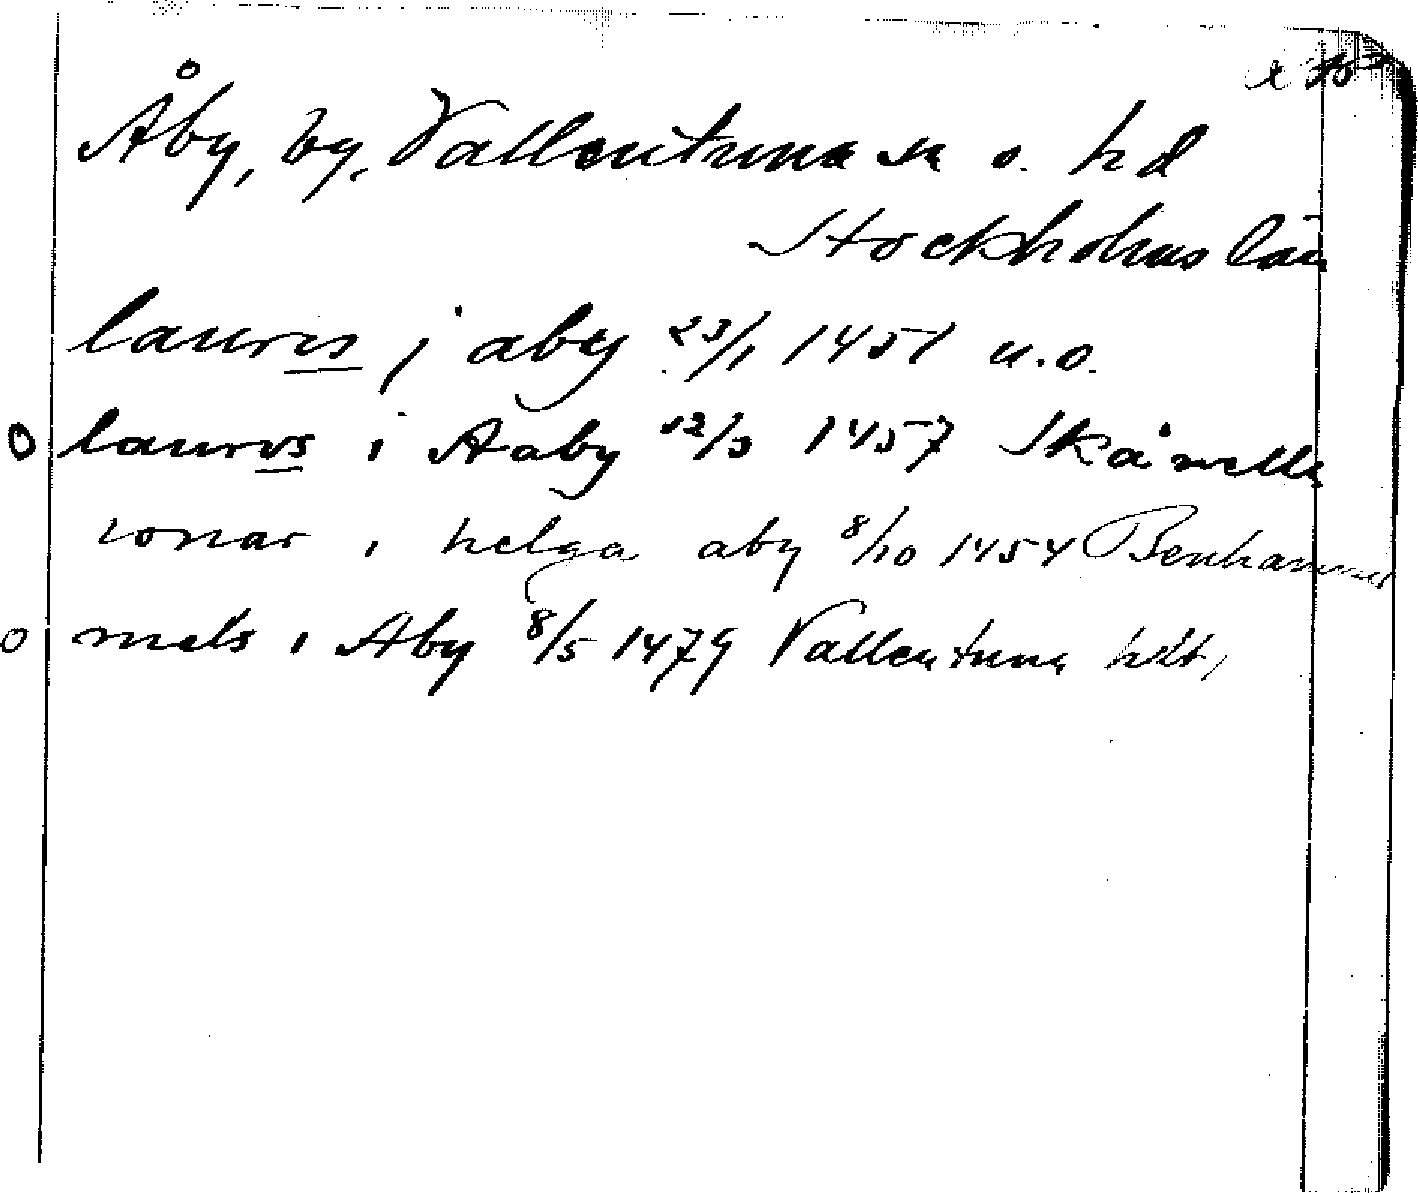 Åby, by, Vallentuna sn o. hd
Stockholms län
laurus j aby 23/1 1451 u.o.
0 laurus i Aaby 12/3 1457 Skånella
ionar i helga aby 8/10 1454 Benhammar
0 mels i Aby 8/5 1479 Vallentuna